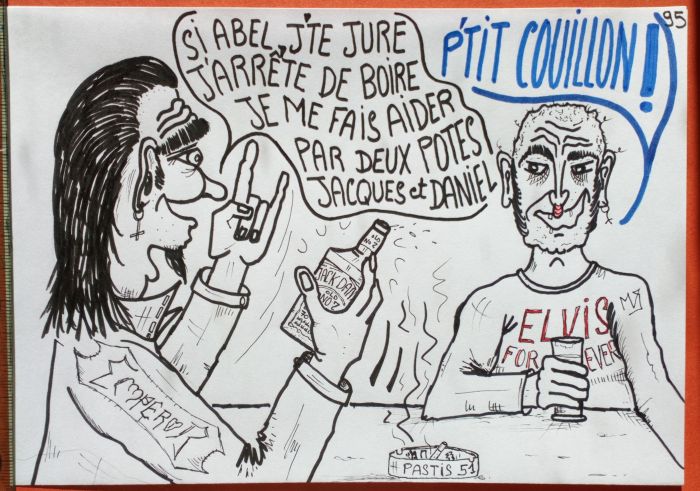 SI ABEL, J'TE JURE
J'ARRÊTE DE BOIRE
JE ME FAIS AIDER
PAR DEUX POTES
JACQUES et DANIEL
P'TIT COUILLON!
95
JACK DANI
ELVIS
FOR EVER
PASTIS 51